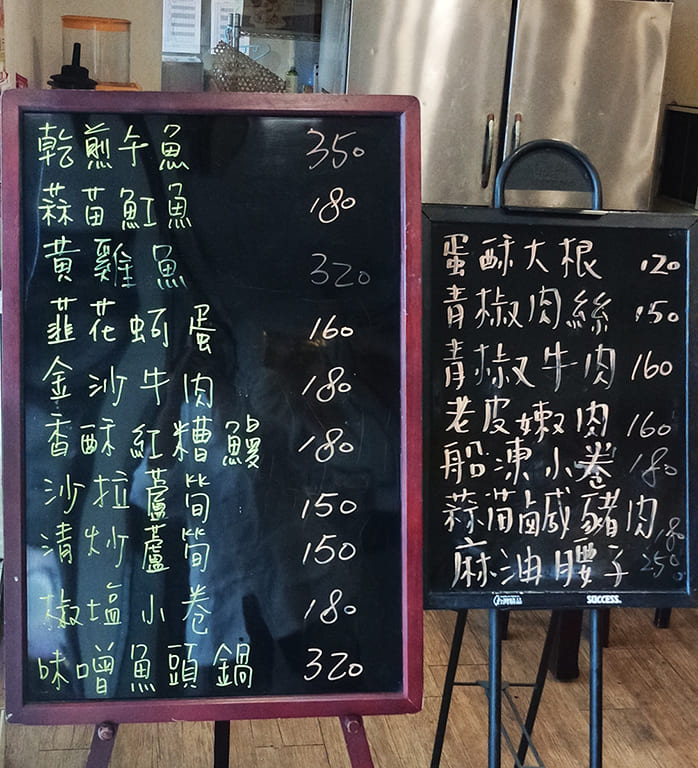 乾煎午魚 350
蒜苗魟魚 180
黃雞魚 320
韮花蚵蛋 160
金沙牛肉 180
香酥紅糟鰻 180
沙拉蘆筍 150
清炒蘆筍 150
椒塩小卷 180
味噌魚頭鍋 320
蛋酥大根 120
青椒肉絲 150
青椒牛肉 160
老皮嫩肉 160
船凍小卷 180
蒜苗鹹豬肉 180
麻油腰子 250
SUCCESS